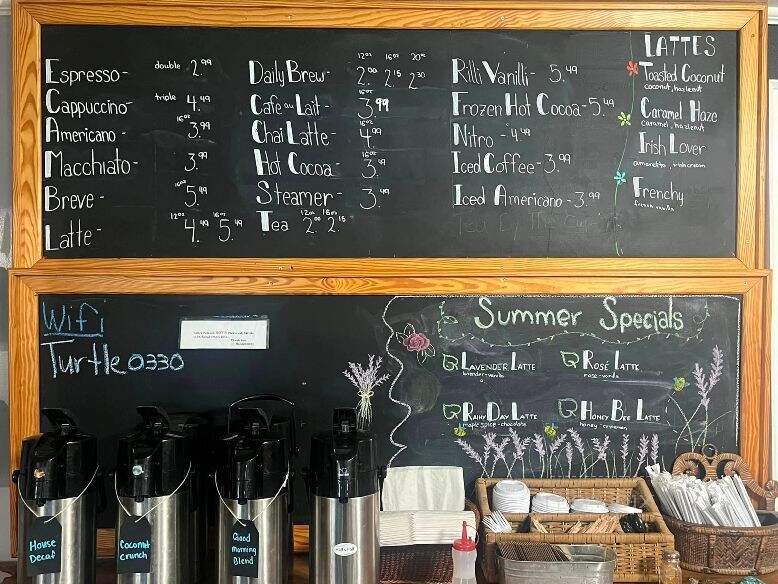 Espresso- double 2.99
Cappuccino- triple 4.49
Americano- 16oz 3.99
Macchiato- 3.99
Breve- 16oz 5.49
12oz 16oz
Latte- 4.49 5.49
12oz 16oz 20oz
Daily Brew- 2.00 2.15 2.30
16oz
Cafe au Lait- 3.99
16oz
Chai Latte- 4.99
16oz
Hot Cocoa- 3.49
16oz
Steamer- 3.49
12oz 16oz
Tea 2.00 2.15
Rilli Vanilli- 5.49
Frozen Hot Cocoa- 5.49
Nitro - 4.99
Iced Coffee- 3.99
Iced Americano- 3.99
Tea By The Cup
LATTES
Toasted Coconut
coconut, hazlenut
Caramel Haze
caramel, hazlenut
Irish Lover
amaretto, irish cream
Frenchy
french vanilla
Wifi
Turtle0330
Summer Specials
Lavender Latte
lavender-vanilla
Rosé Latte
rose-vanilla
Rainy Day Latte
maple spice-chocolate
Honey Bee Latte
honey-cinnamon
House
Decaf
Coconut
crunch
Good
morning
Blend
Half & Half